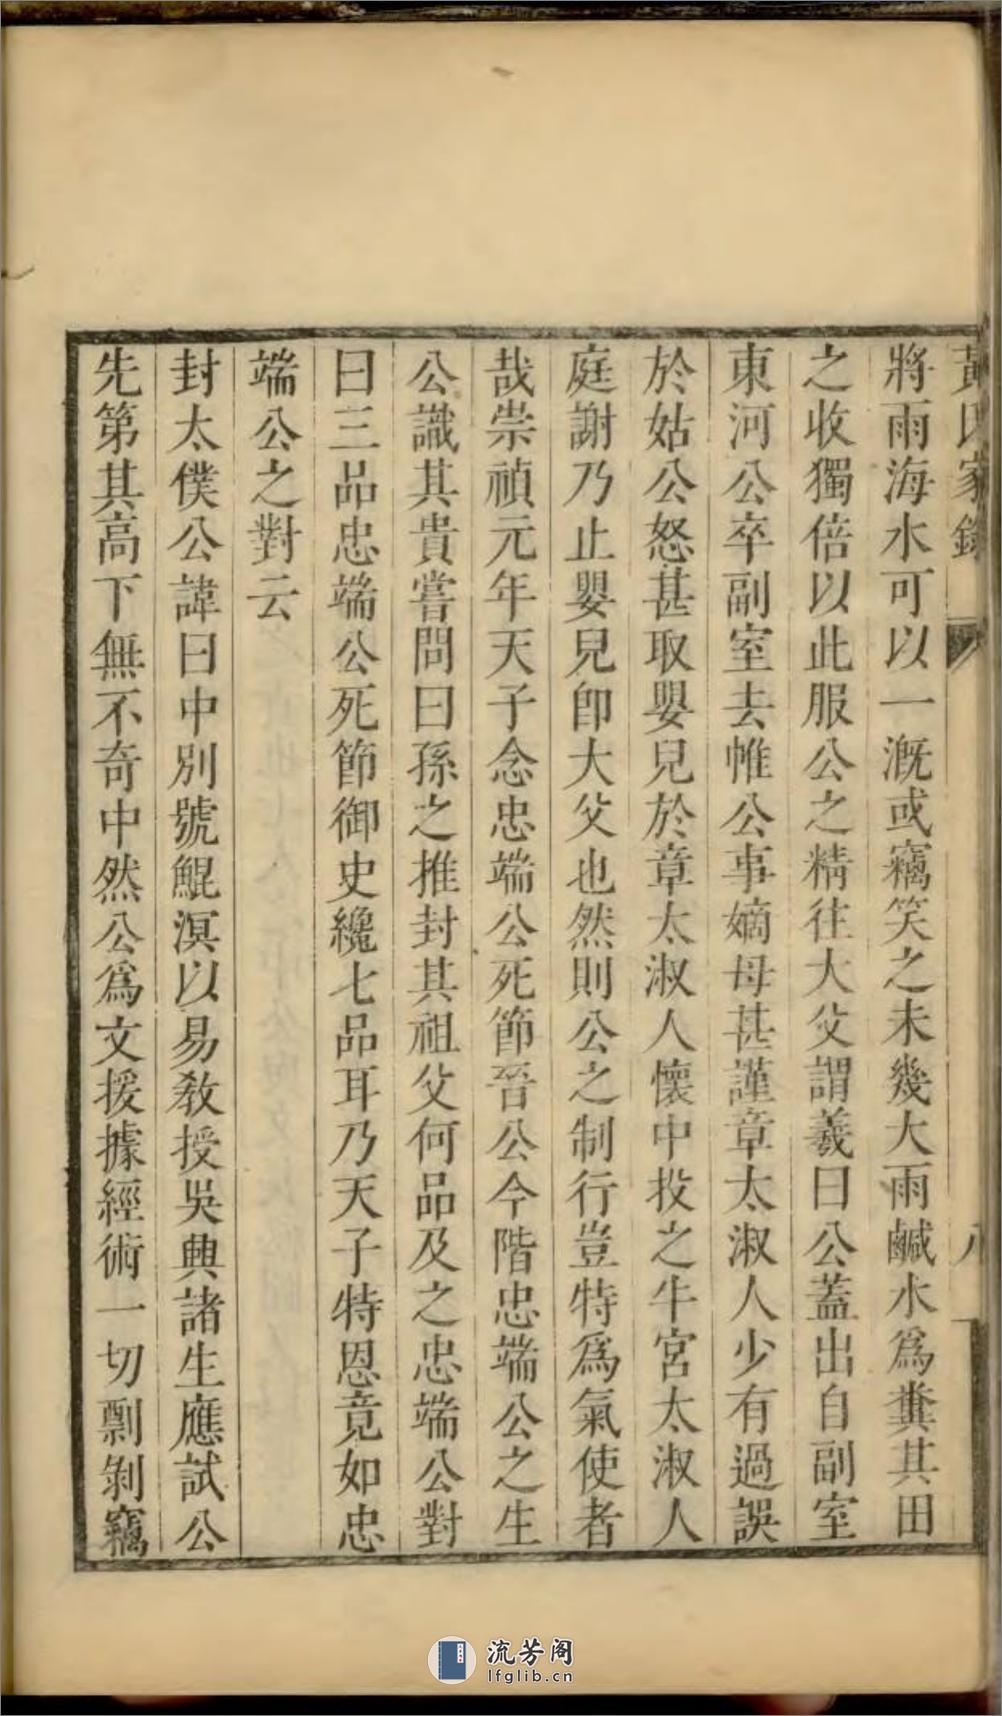 黃氏家錄
八
將雨海水可以一溉或竊笑之未幾大雨鹹水爲糞其田
之收獨倍以此服公之精往大父謂羲曰公蓋出自副室
東河公卒副室去帷公事嫡母甚謹章太淑人少有過誤
於姑公怒甚取嬰兒於章太淑人懷中投之牛宮太淑人
庭謝乃止嬰兒卽大父也然則公之制行豈特爲氣使者
哉崇禎元年天子念忠端公死節晉公今階忠端公之生
公識其貴嘗問曰孫之推封其祖父何品及之忠端公對
曰三品忠端公死節御史纔七品耳乃天子特恩竟如忠
端公之對云
封太僕公諱曰中別號鯤溟以易敎授吳興諸生應試公
先第其高下無不奇中然公爲文援據經術一切剽剝竊
流芳阁
lfglib.cn